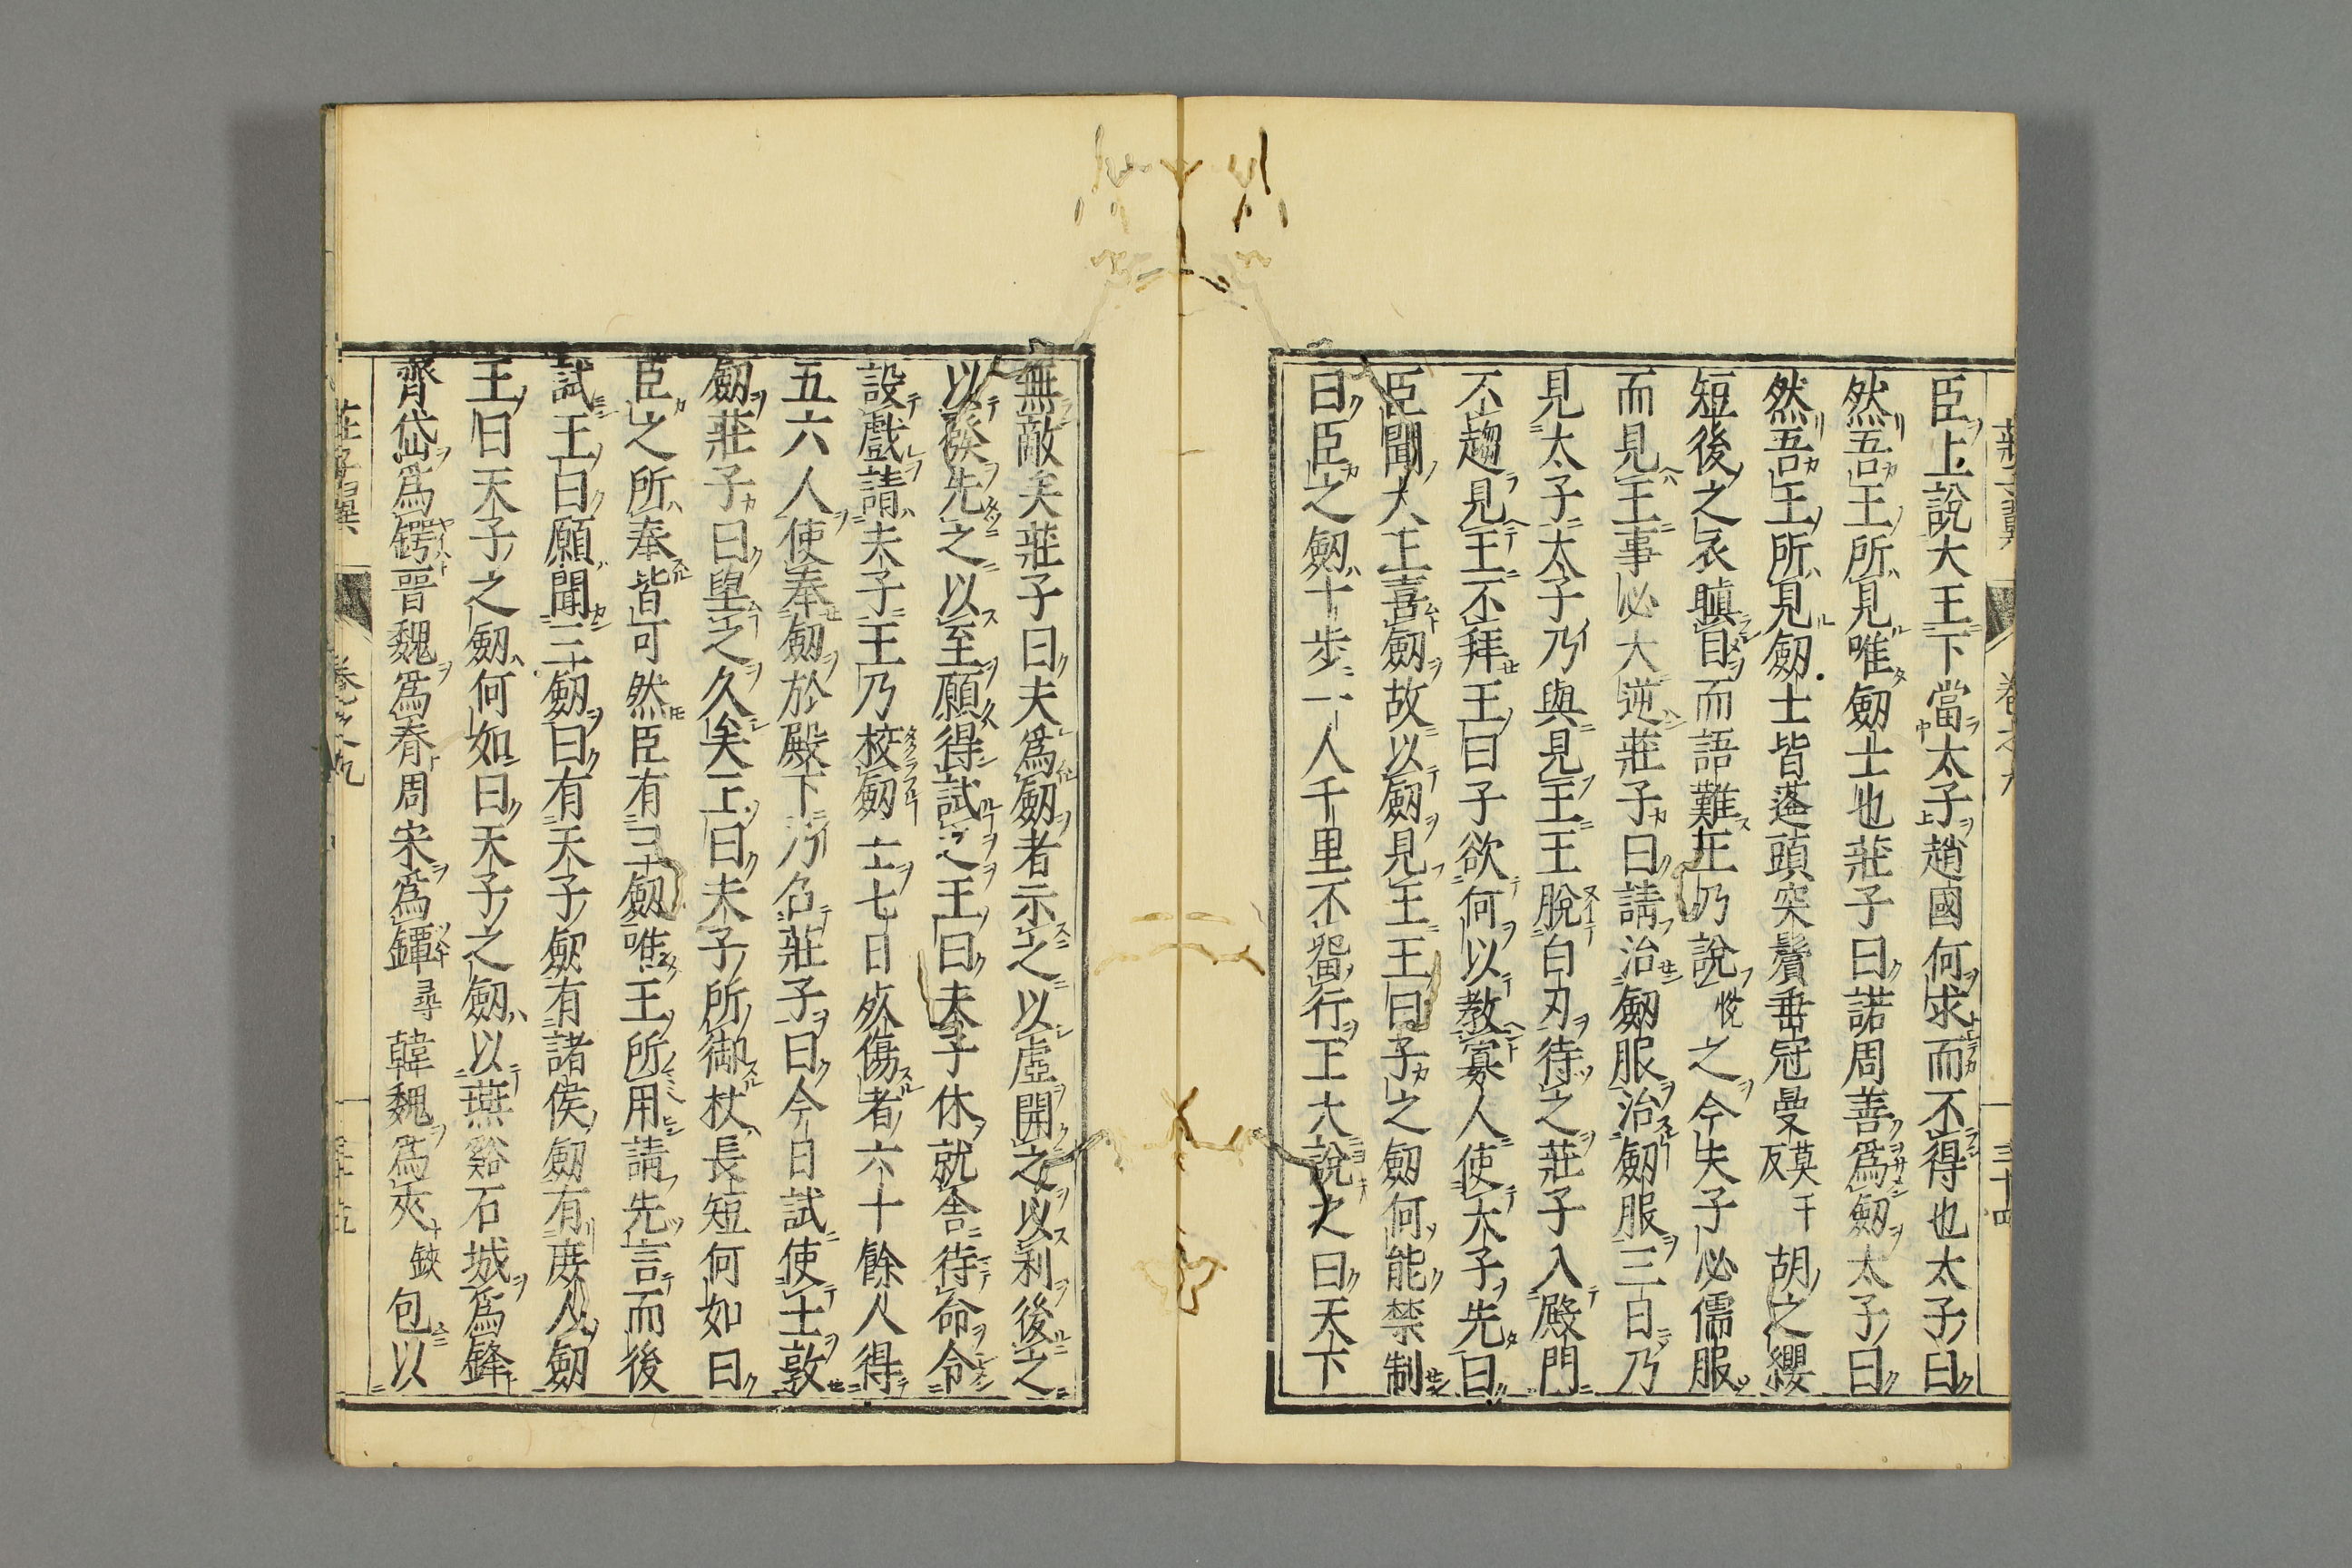 臣上說大王下當太子趙國何求而不得也太子曰
然吾王所見唯劒士也莊子曰諾周善爲劒太子曰
然吾王所見劒士皆蓬頭突鬢垂冠曼莫干反胡之纓
短後之衣瞋目而語難王乃說悅之今夫子必儒服
而見王事必大逆莊子曰請治劒服治劒服三日乃
見太子太子乃與見王王脫白刃待之莊子入殿門
不趨見王不拜王曰子欲何以教寡人使太子先曰
臣聞大王喜劒故以劒見王王曰子之劒何能禁制
曰臣之劒十步一人千里不畱行王大說之曰天下
無敵矣莊子曰夫爲劒者示之以虛開之以利後之
以發先之以至願得試之王曰夫子休就舍待命令
設戲請夫子王乃校劒士七日死傷者六十餘人得
五六人使奉劒於殿下乃召莊子曰今日試使士敦
劒莊子曰望之久矣王曰夫子所御杖長短何如曰
臣之所奉皆可然臣有三劒唯王所用請先言而後
試王曰願聞三劒曰有天子劒有諸侯劒有庶人劒
王曰天子之劒何如曰天子之劒以燕谿石城爲鋒
齊岱爲鍔晉魏爲脊周宋爲鐔尋韓魏爲夾鋏包以
莊子翼 卷之九